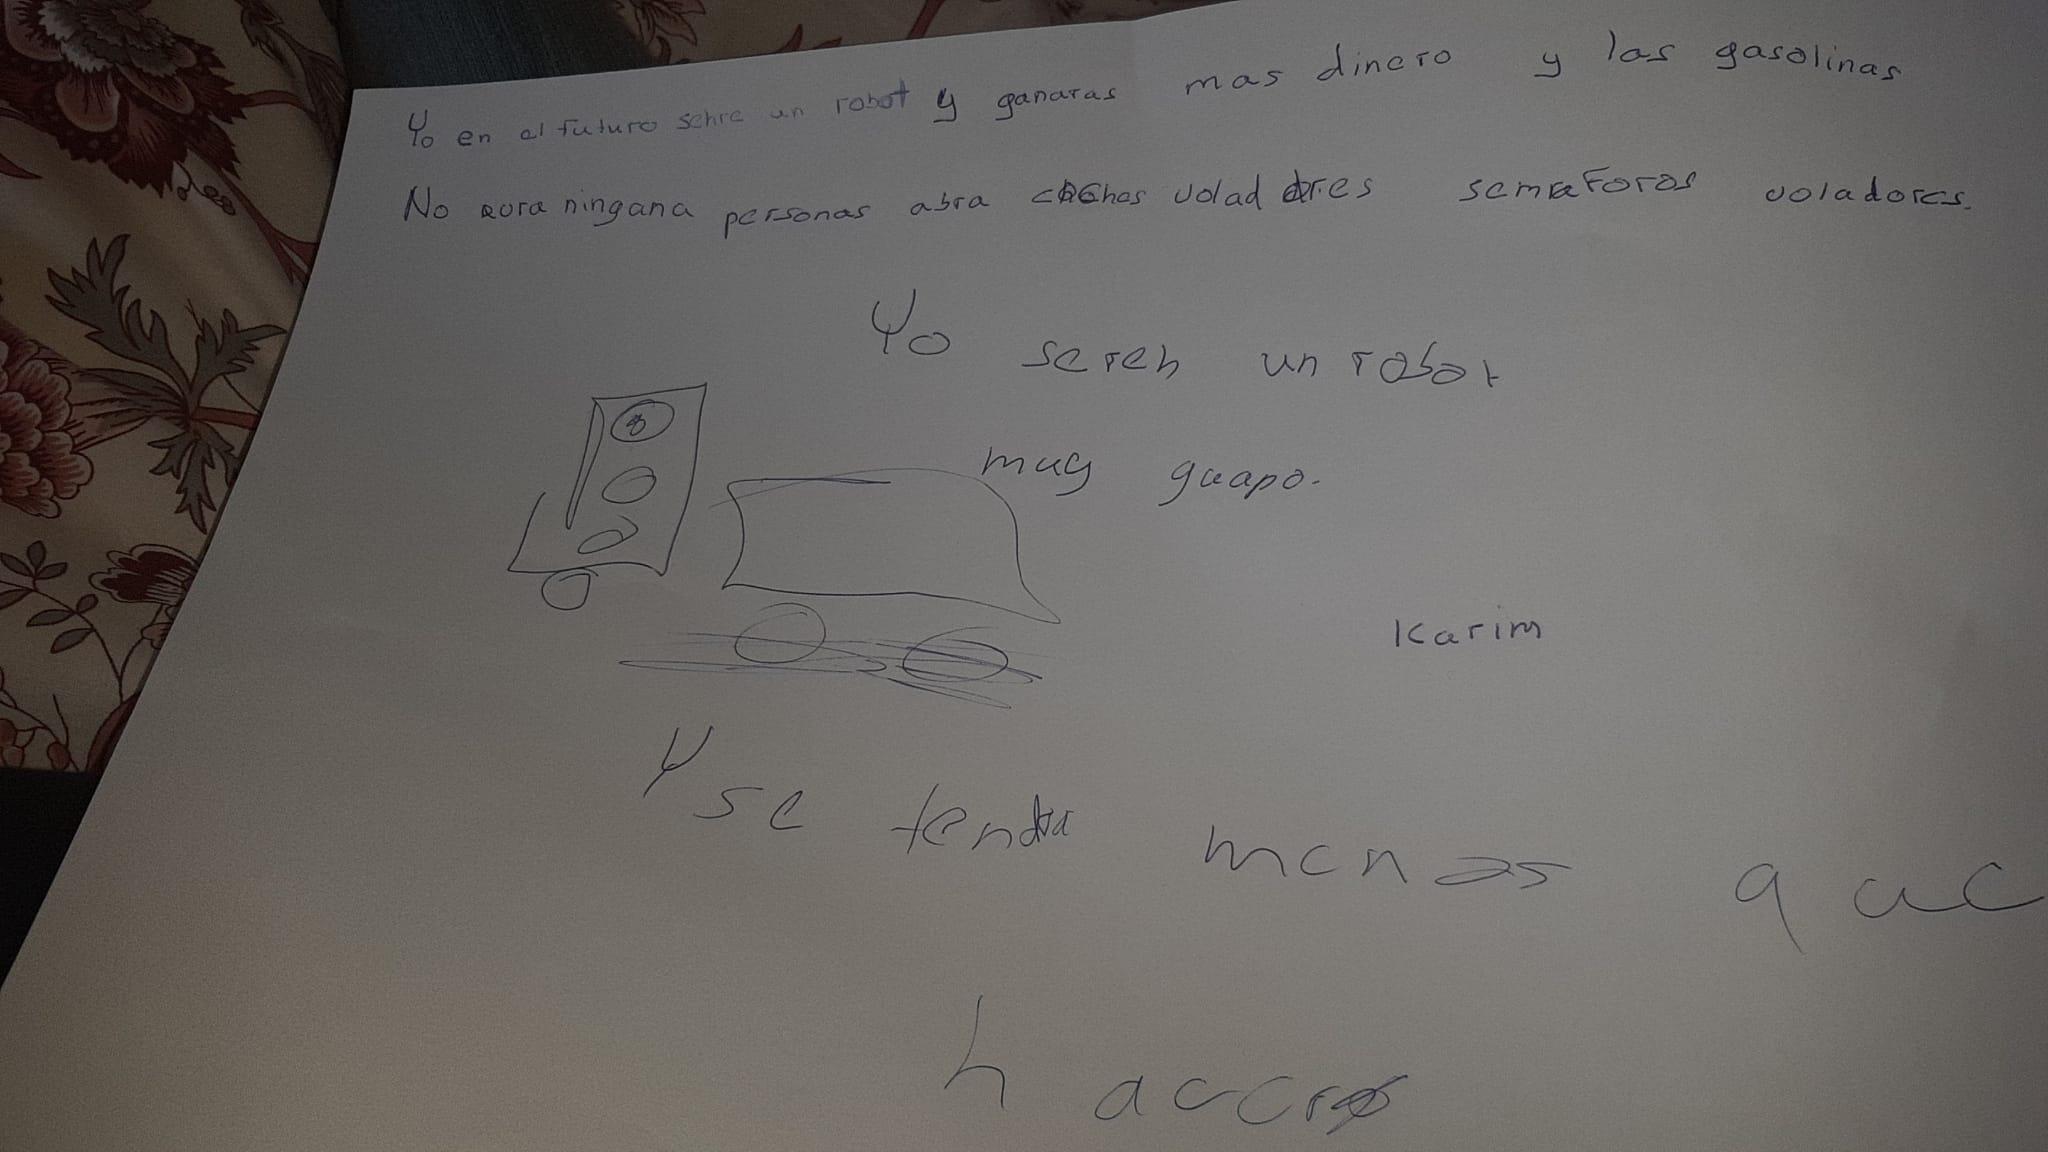 Yo en el futuro sehre un robot y ganaras mas dinero y las gasolinas
No aora ningana personas abra coches voladores semaforos voladores.
Yo sereh un robot
muy guapo.
Karim
Y se tendra menos que
hacer